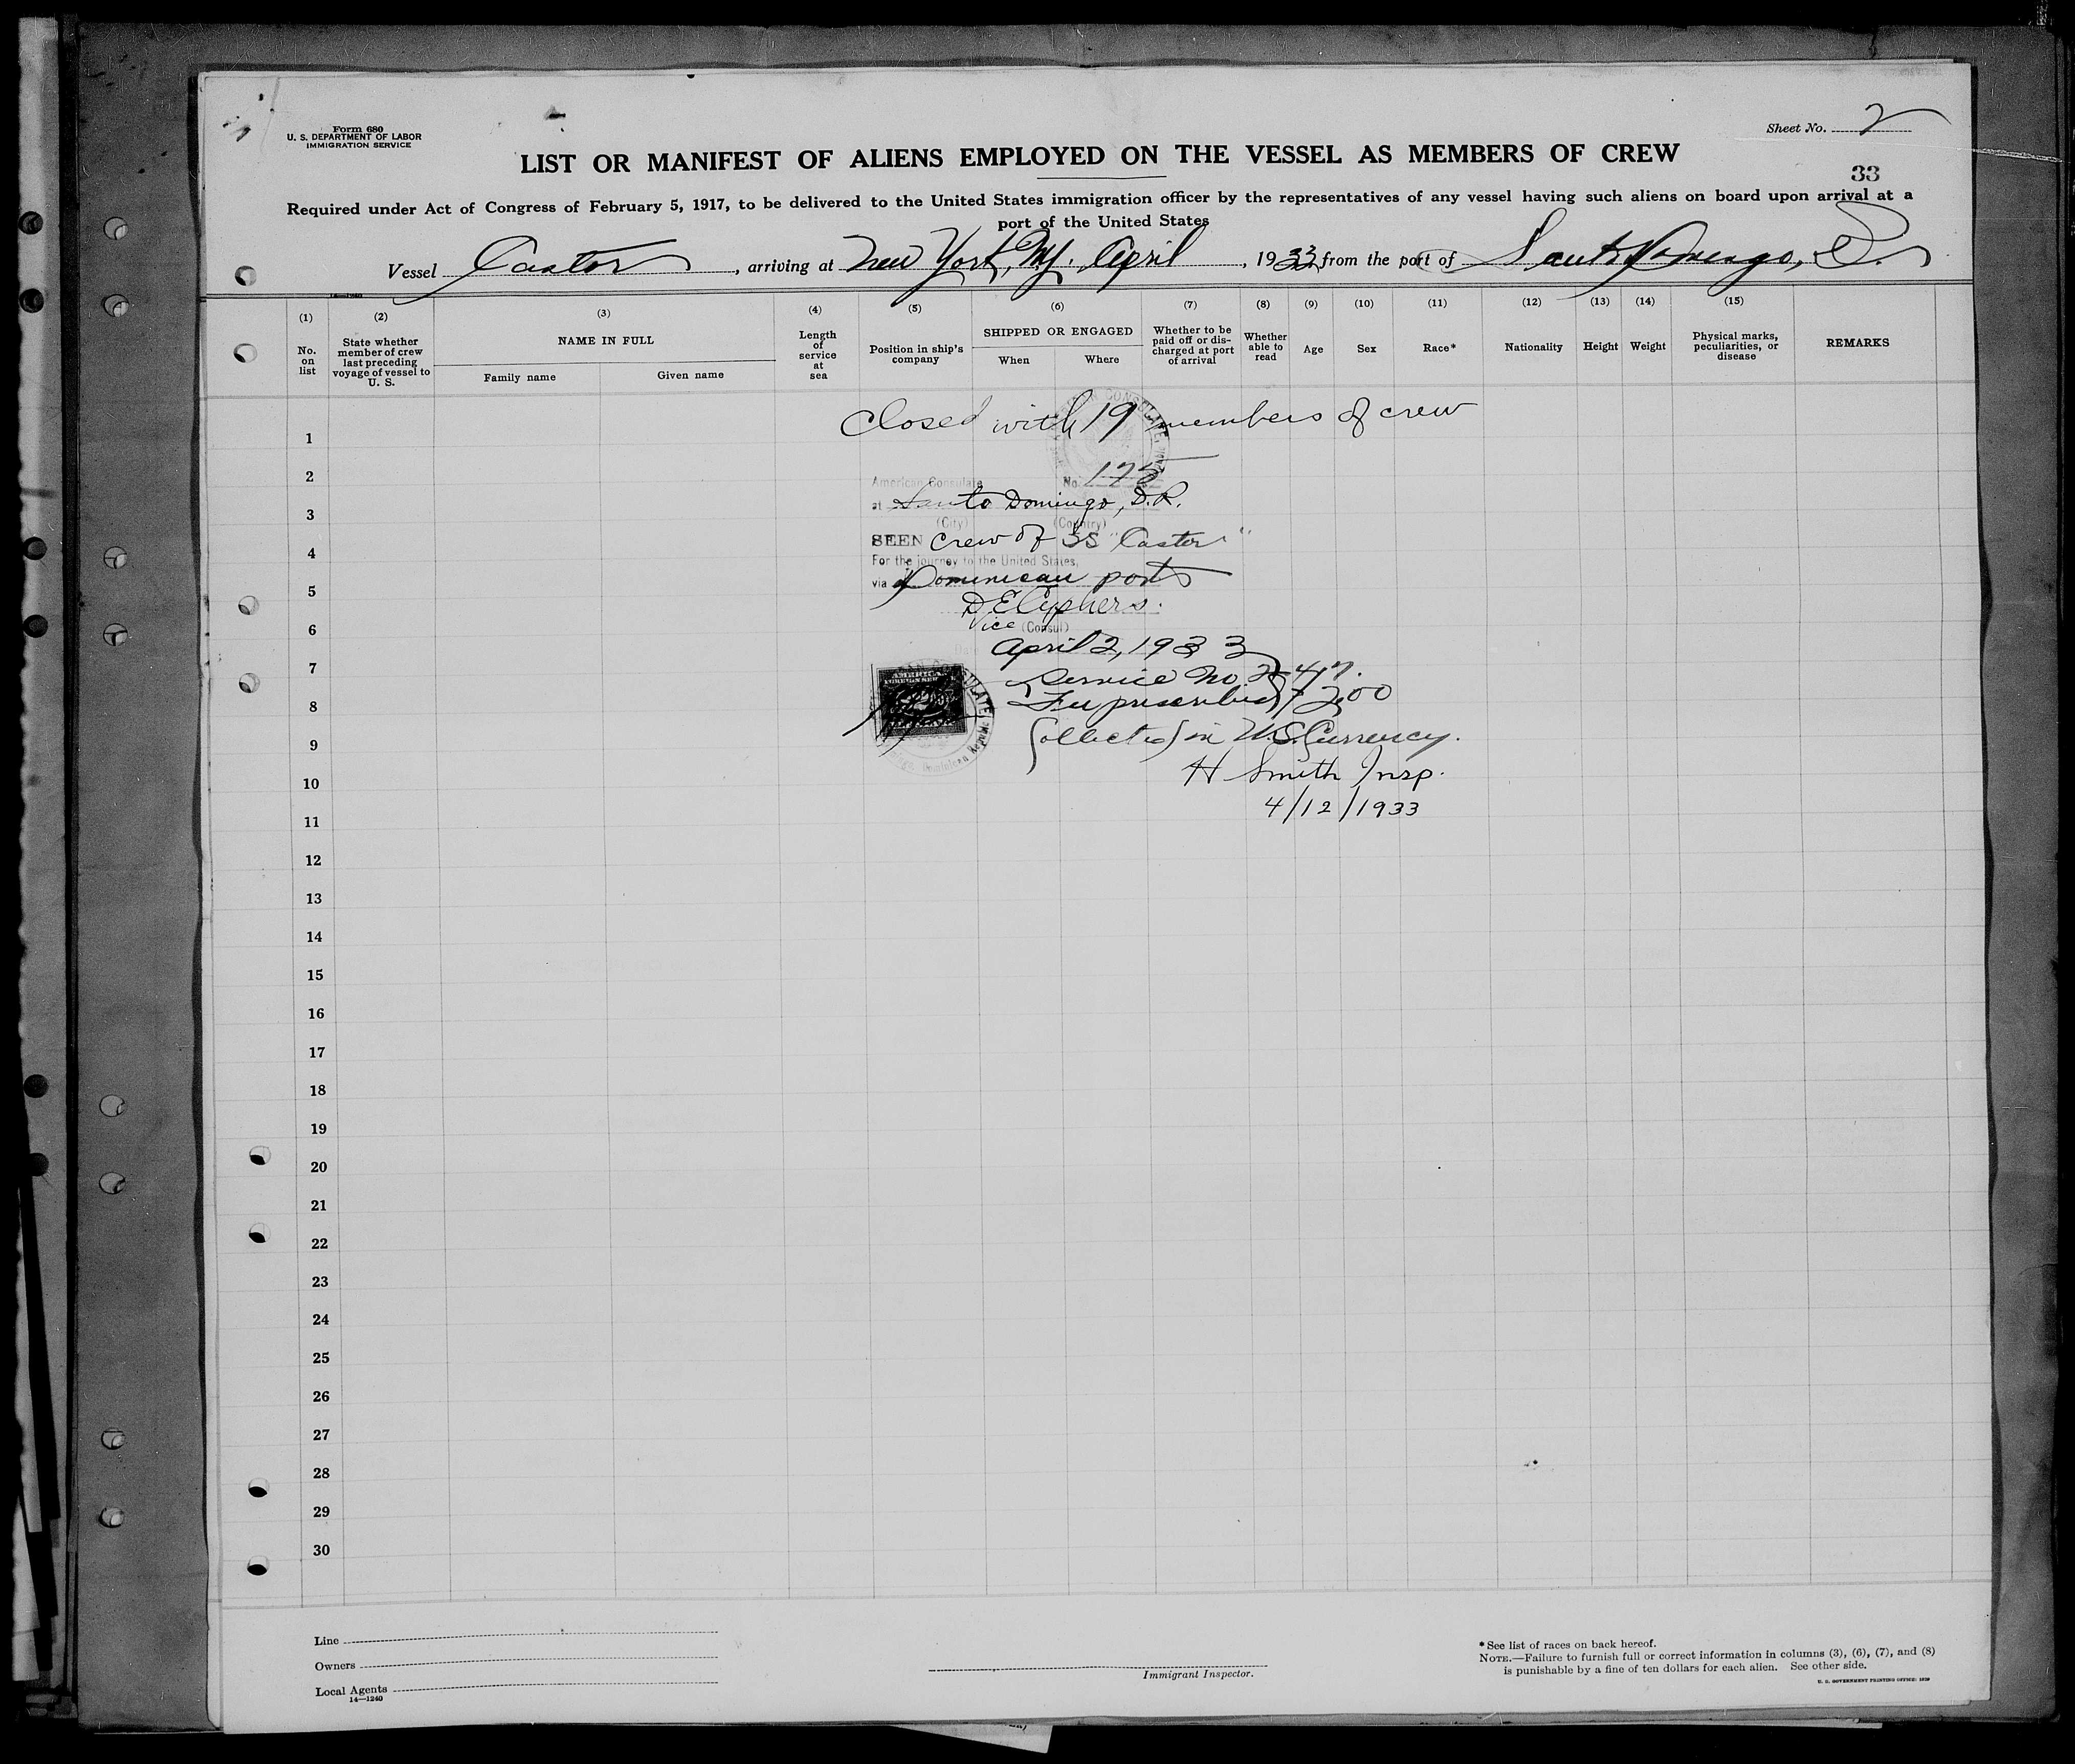 Form 680
U. S. DEPARTMENT OF LABOR
IMMIGRATION SERVICE
Sheet No. 2
LIST OR MANIFEST OF ALIENS EMPLOYED ON THE VESSEL AS MEMBERS OF CREW
33
Required under Act of Congress of February 5, 1917, to be delivered to the United States immigration officer by the representatives of any vessel having such aliens on board upon arrival at a
port of the United States
Vessel Castor, arriving at New York, N.Y. April, 1933, from the port of Santo Domingo, D.
14—1240
(1) (2) (3) (4) (5) (6) (7) (8) (9) (10) (11) (12) (13) (14) (15)
No. on list
State whether member of crew last preceding voyage of vessel to U. S.
NAME IN FULL
Family name
Given name
Length of service at sea
Position in ship's company
SHIPPED OR ENGAGED
When
Where
Whether to be paid off or discharged at port of arrival
Whether able to read
Age
Sex
Race*
Nationality
Height
Weight
Physical marks, peculiarities, or disease
REMARKS
Closed with 19 members of crew
1
American Consulate No. 175
2
at Santo Domingo, D.R.
3
(City) (Country)
SEEN crew of SS "Castor"
4
For the journey to the United States,
via Dominican ports
5
D E Cyphers.
Vice (Consul)
6
April 2, 1933
7
Service No. 247.
Fee prescribed $ 2.00
8
Collected in U.S. Currency.
9
H Smith Insp.
10
4/12/1933
11
12
13
14
15
16
17
18
19
20
21
22
23
24
25
26
27
28
29
30
Line
Owners
Local Agents
14—1240
Immigrant Inspector.
* See list of races on back hereof.
NOTE.—Failure to furnish full or correct information in columns (3), (6), (7), and (8)
is punishable by a fine of ten dollars for each alien. See other side.
U. S. GOVERNMENT PRINTING OFFICE: 1929